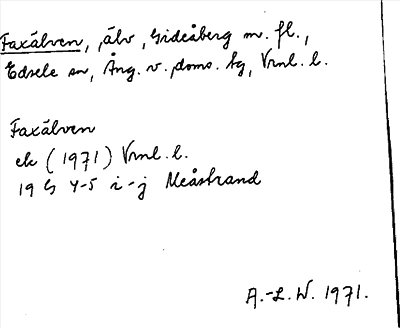 Faxälven, älv, Gideåberg m. fl.,
Edsele sn, Ång. v. doms. hg, Vrnl. l.
Faxälven
ek (1971) Vrnl. l.
19 G 4-5 i-j Meåstrand
A.-L. W. 1971.